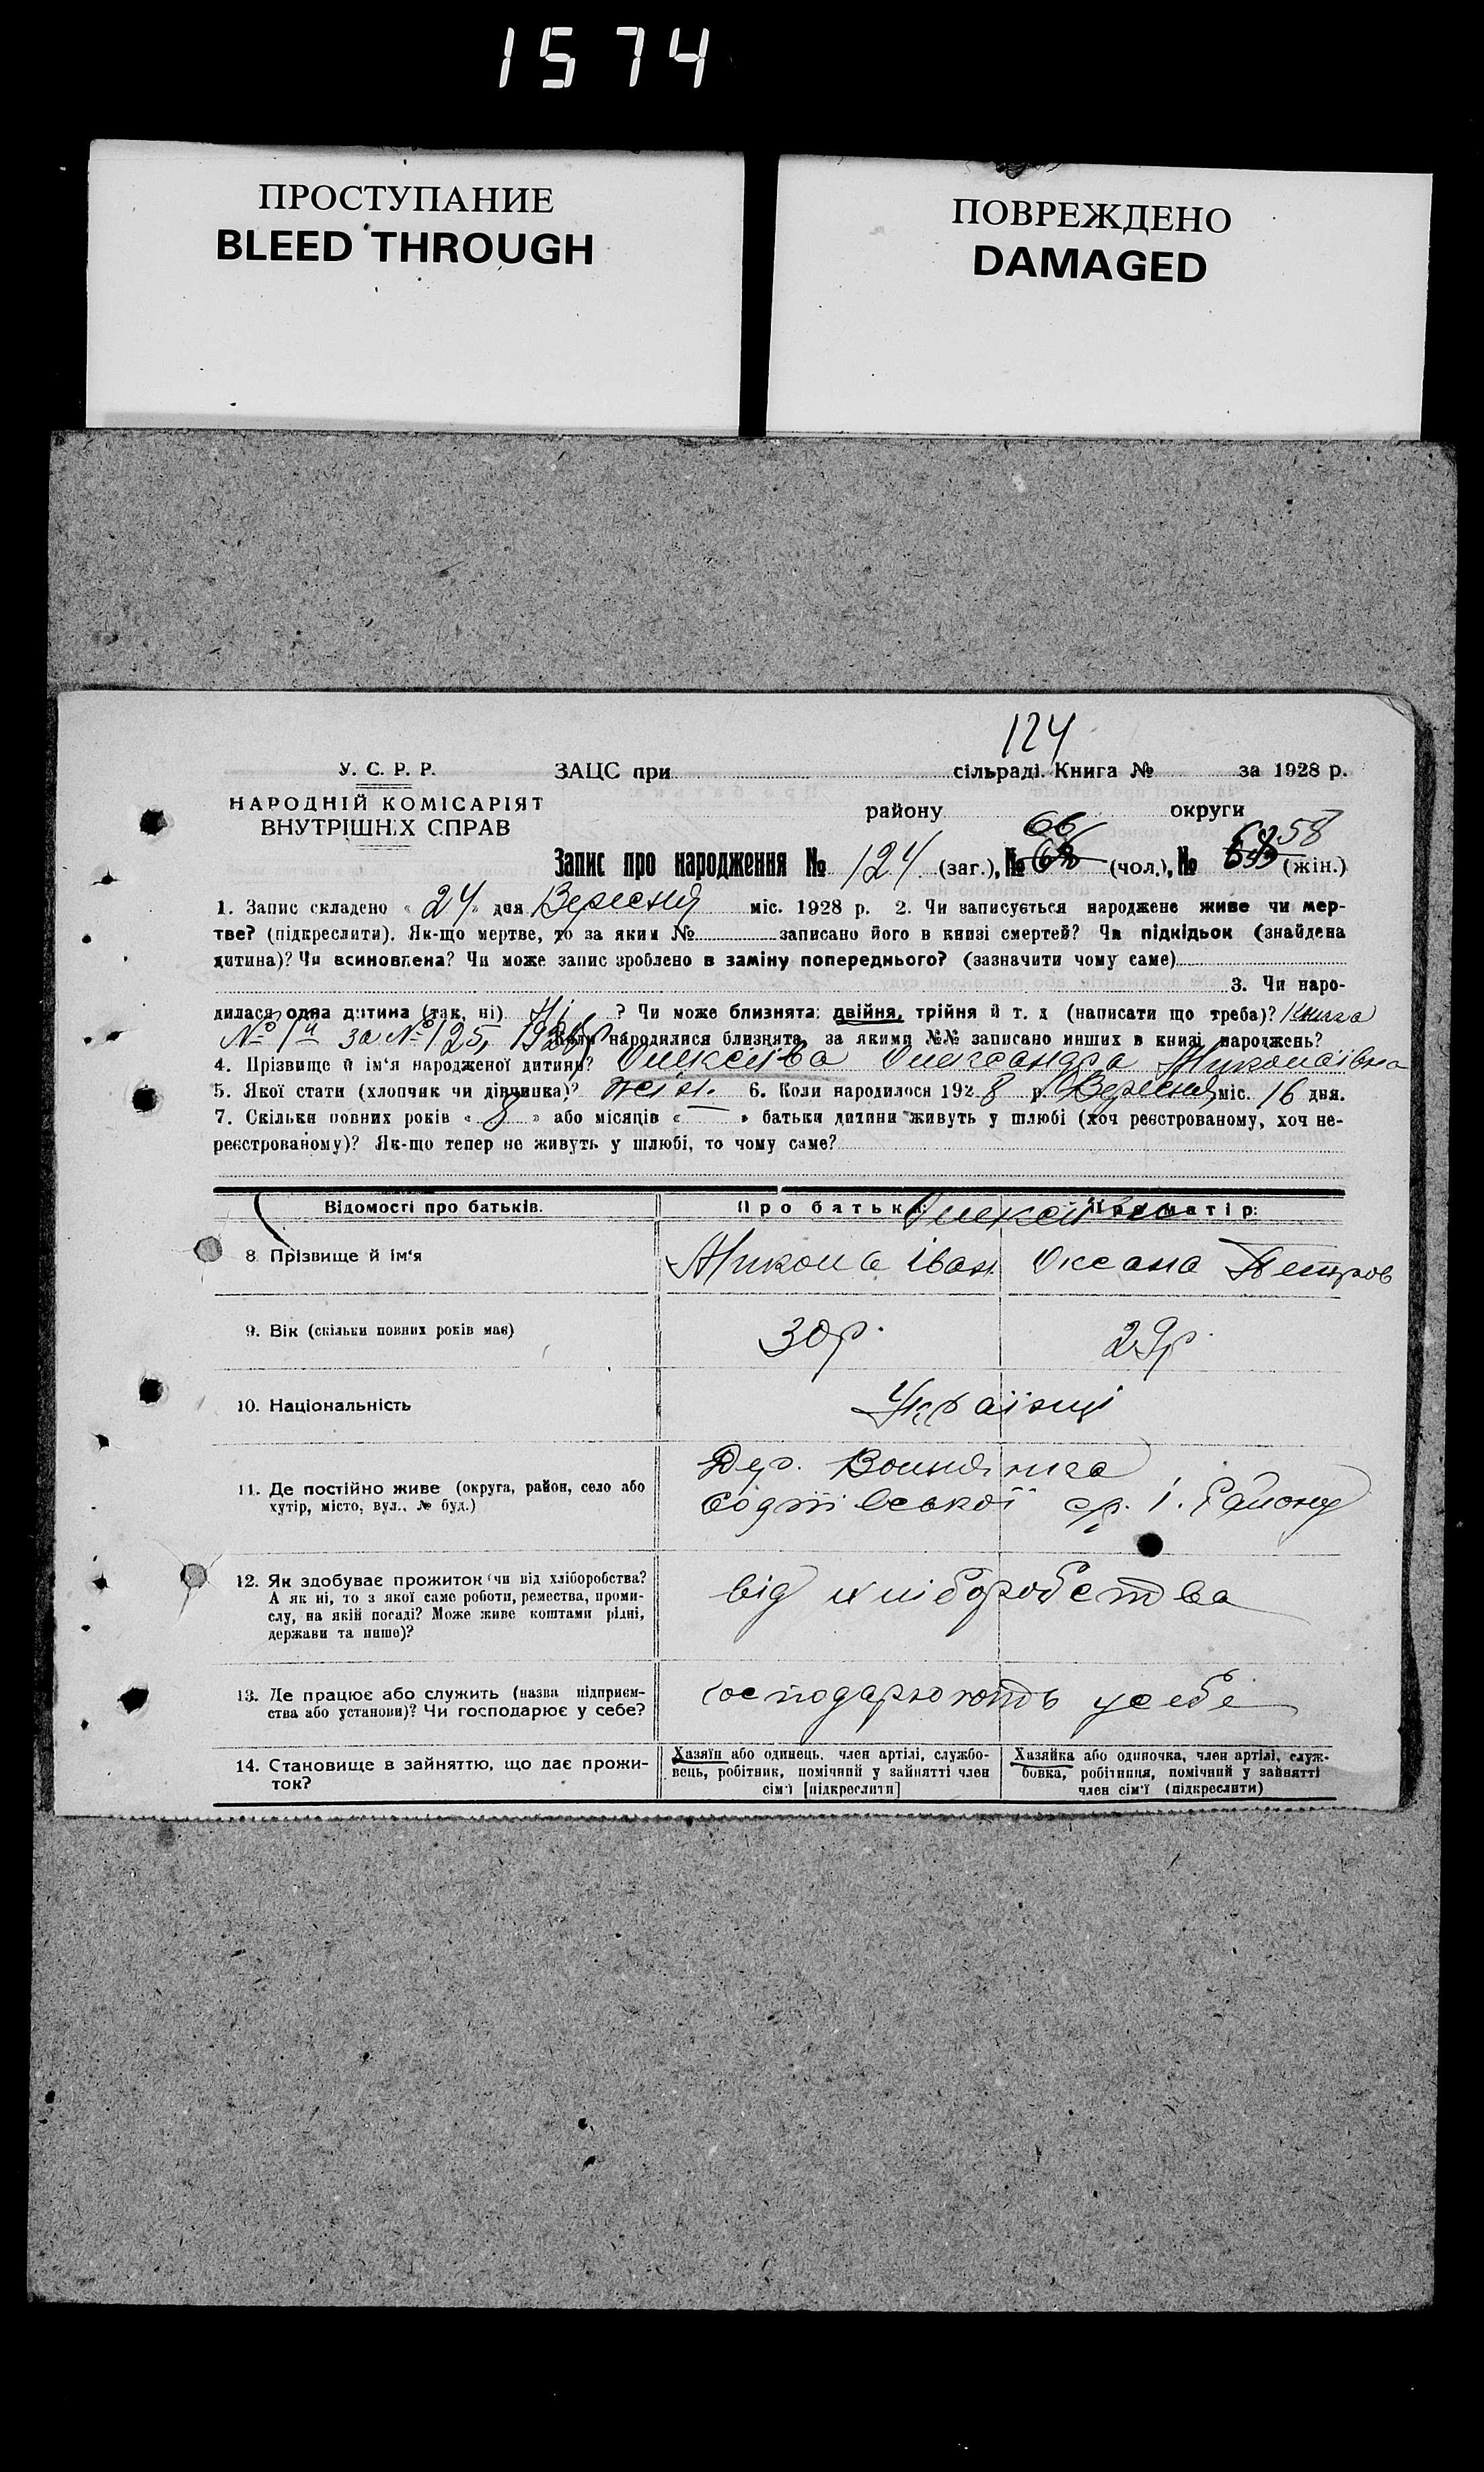 1574
ПРОСТУПАНИЕ
BLEED THROUGH
ПОВРЕЖДЕНО
DAMAGED
124
У. С. Р. Р.
НАРОДНІЙ КОМІСАРІЯТ
ВНУТРІШНІХ СПРАВ
ЗАЦС при сільраді. Книга № за 1928 р.
району округи
66 58
Запис про народження № 124 (заг.), № (чол.), № (жін.)
1. Запис складено « 24 » дня Вересня міс. 1928 р. 2. Чи записується народжене живе чи мер-
тве? (підкреслити). Як-що мертве, то за яким № записано його в книзі смертей? Чи підкідьок (знайдена
дитина)? Чи всиновлена? Чи може запис зроблено в заміну попереднього? (зазначити чому саме)
3. Чи наро-
дилася одна дитина (так, ні) Ні ? Чи може близнята: двійня, трійня й т. д (написати що треба)? Книга
№ 1й за № 125, 1928р Коли народилися близнята, за якими №№ записано инших в книзі народжень?
4. Прізвище й ім'я народженої дитини? Олексіїва Олександра Миколаївна
5. Якої стати (хлопчик чи дівчинка)? жін. 6. Коли народилося 1928 р. Вересня міс. 16 дня.
7. Скільки повних років « 8 » або місяців « — » батьки дитини живуть у шлюбі (хоч реєстрованому, хоч не-
реєстрованому)? Як-що тепер не живуть у шлюбі, то чому саме?
Відомості про батьків. Про батька Про матір:
8 Прізвище й ім'я
Микола Іван. Оксана Петров
9. Вік (скільки повних років має) 30р. 29р.
10. Національність Українці
11. Де постійно живе (округа, район, село або
хутір, місто, вул., № буд.)
Дер.
с/р. 1. Району
12. Як здобуває прожиток (чи від хліборобства?
А як ні, то з якої саме роботи, ремества, проми-
слу, на якій посаді? Може живе коштами рідні,
держави та инше)?
від хліборобства
13. Де працює або служить (назва підприєм-
ства або установи)? Чи господарює у себе?
господарюють у себе
14. Становище в зайняттю, що дає прожи-
ток?
Хазяїн або одинець, член артілі, службо-
вець, робітник, помічний у зайнятті член
сім'ї [підкреслити]
Хазяйка або одиночка, член артілі, служ-
бовка, робітниця, помічний у зайнятті
член сім'ї (підкреслити)